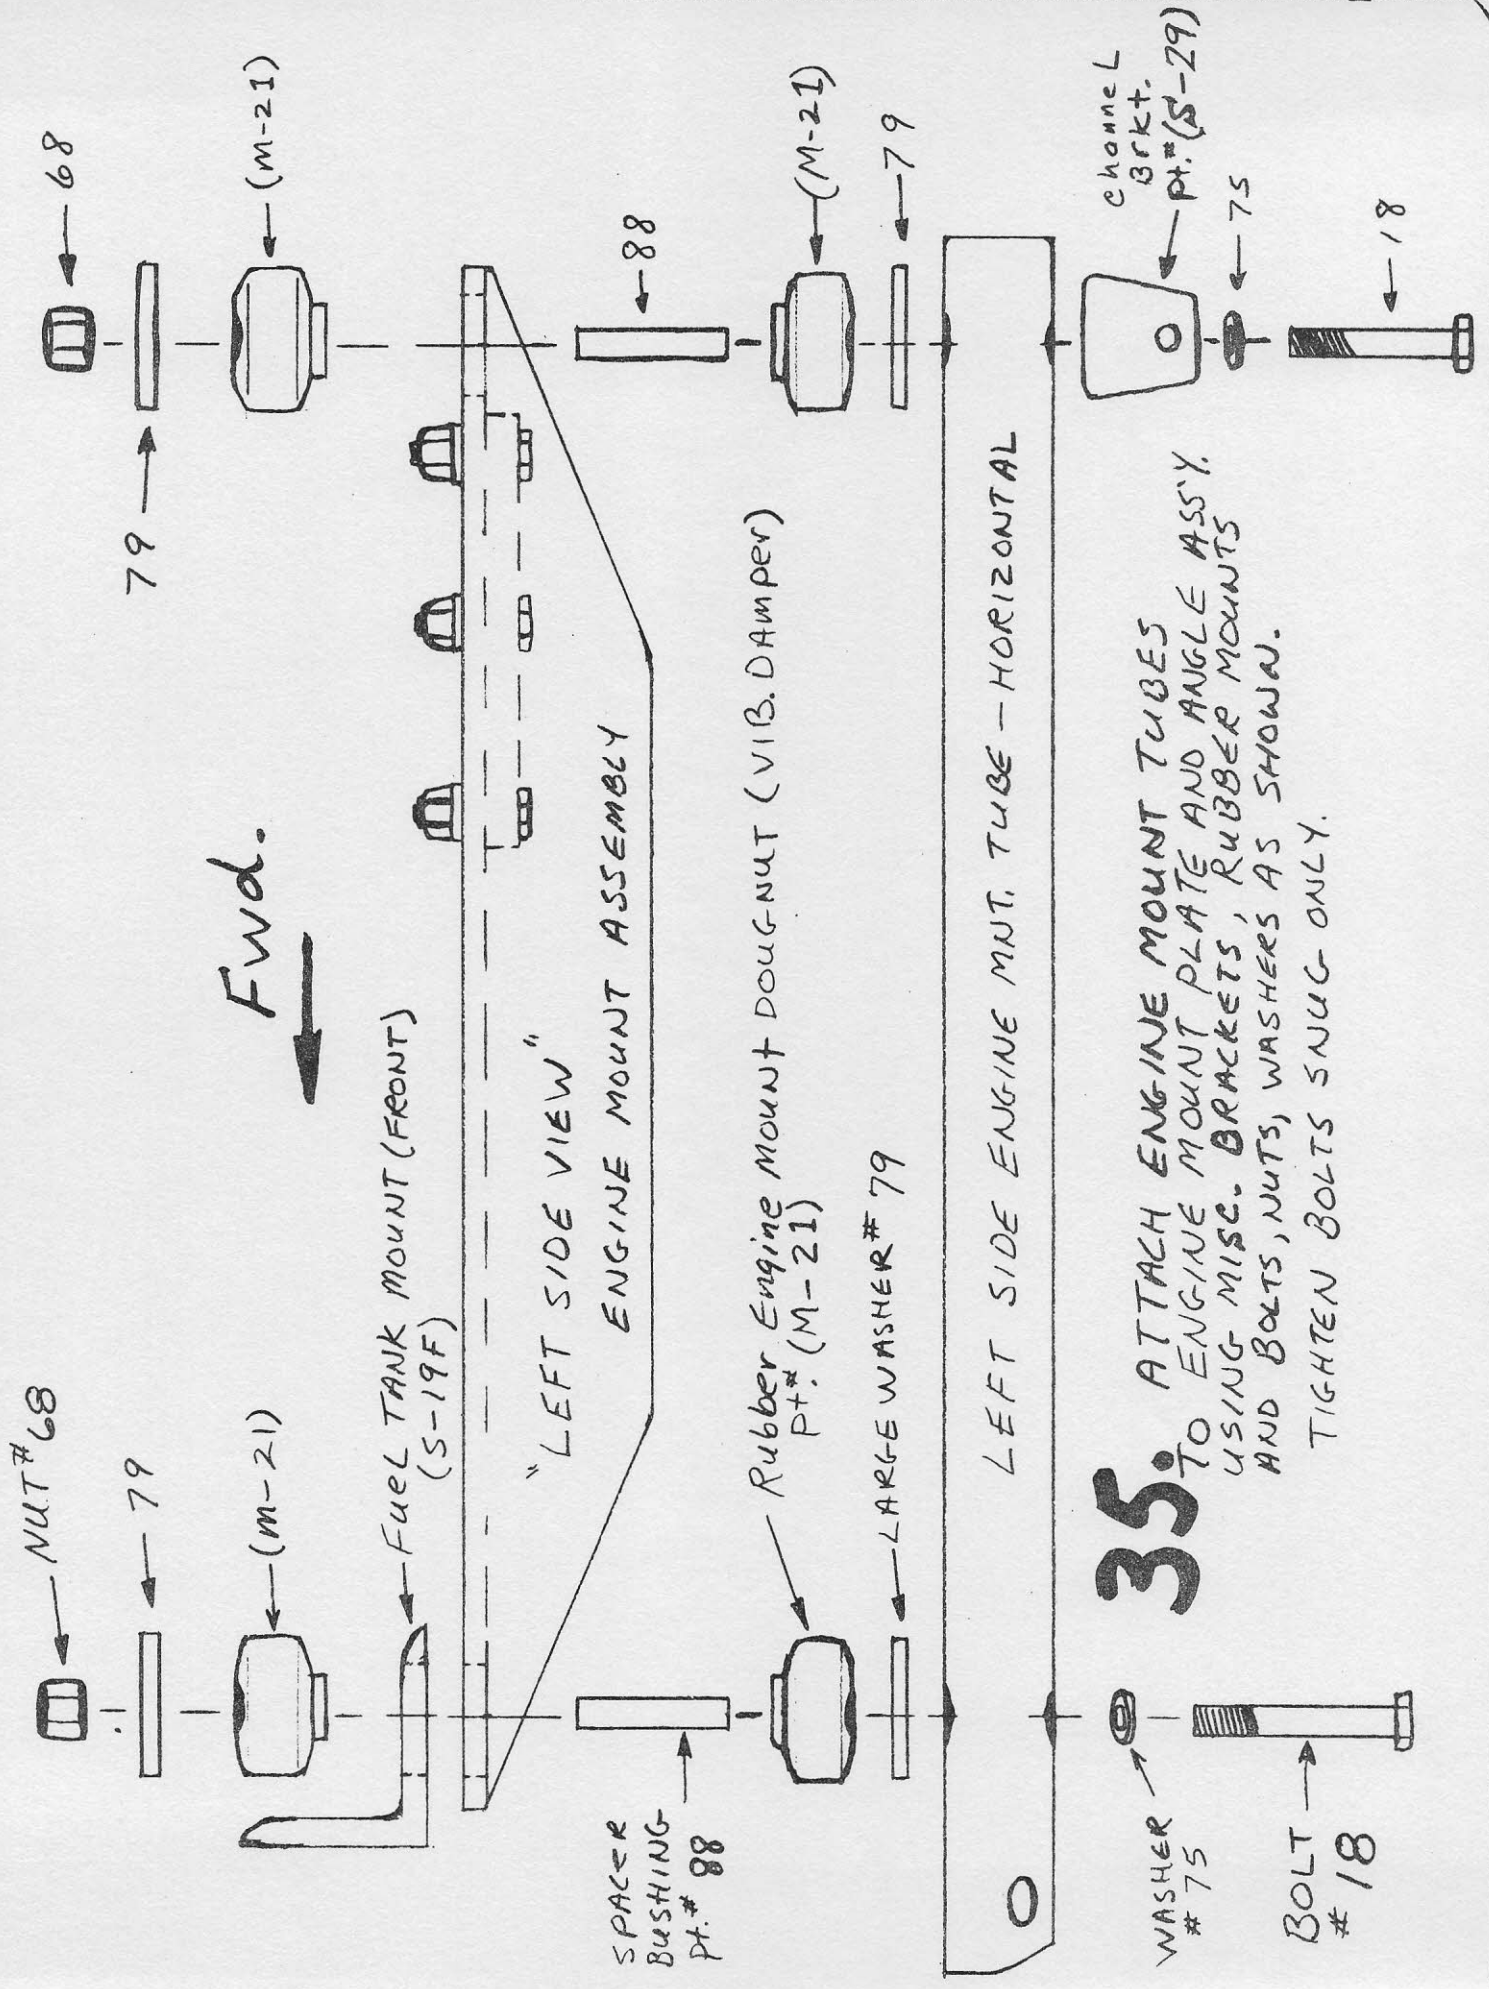 NUT # 68
68
79
79
(M-21)
(M-21)
Fwd.
Fuel TANK MOUNT (FRONT)
(S-19F)
"LEFT SIDE VIEW"
ENGINE MOUNT ASSEMBLY
SPACER
BUSHING
Pt.# 88
88
Rubber Engine Mount DOUGNUT (VIB. DAMPER)
Pt.# (M-21)
(M-21)
LARGE WASHER # 79
79
LEFT SIDE ENGINE MNT. TUBE - HORIZONTAL
channel
Brkt.
Pt.# (S-29)
WASHER
# 75
75
BOLT
# 18
18
35. ATTACH ENGINE MOUNT TUBES
TO ENGINE MOUNT PLATE AND ANGLE ASS'Y.
USING MISC. BRACKETS, RUBBER MOUNTS
AND BOLTS, NUTS, WASHERS AS SHOWN.
TIGHTEN BOLTS SNUG ONLY.